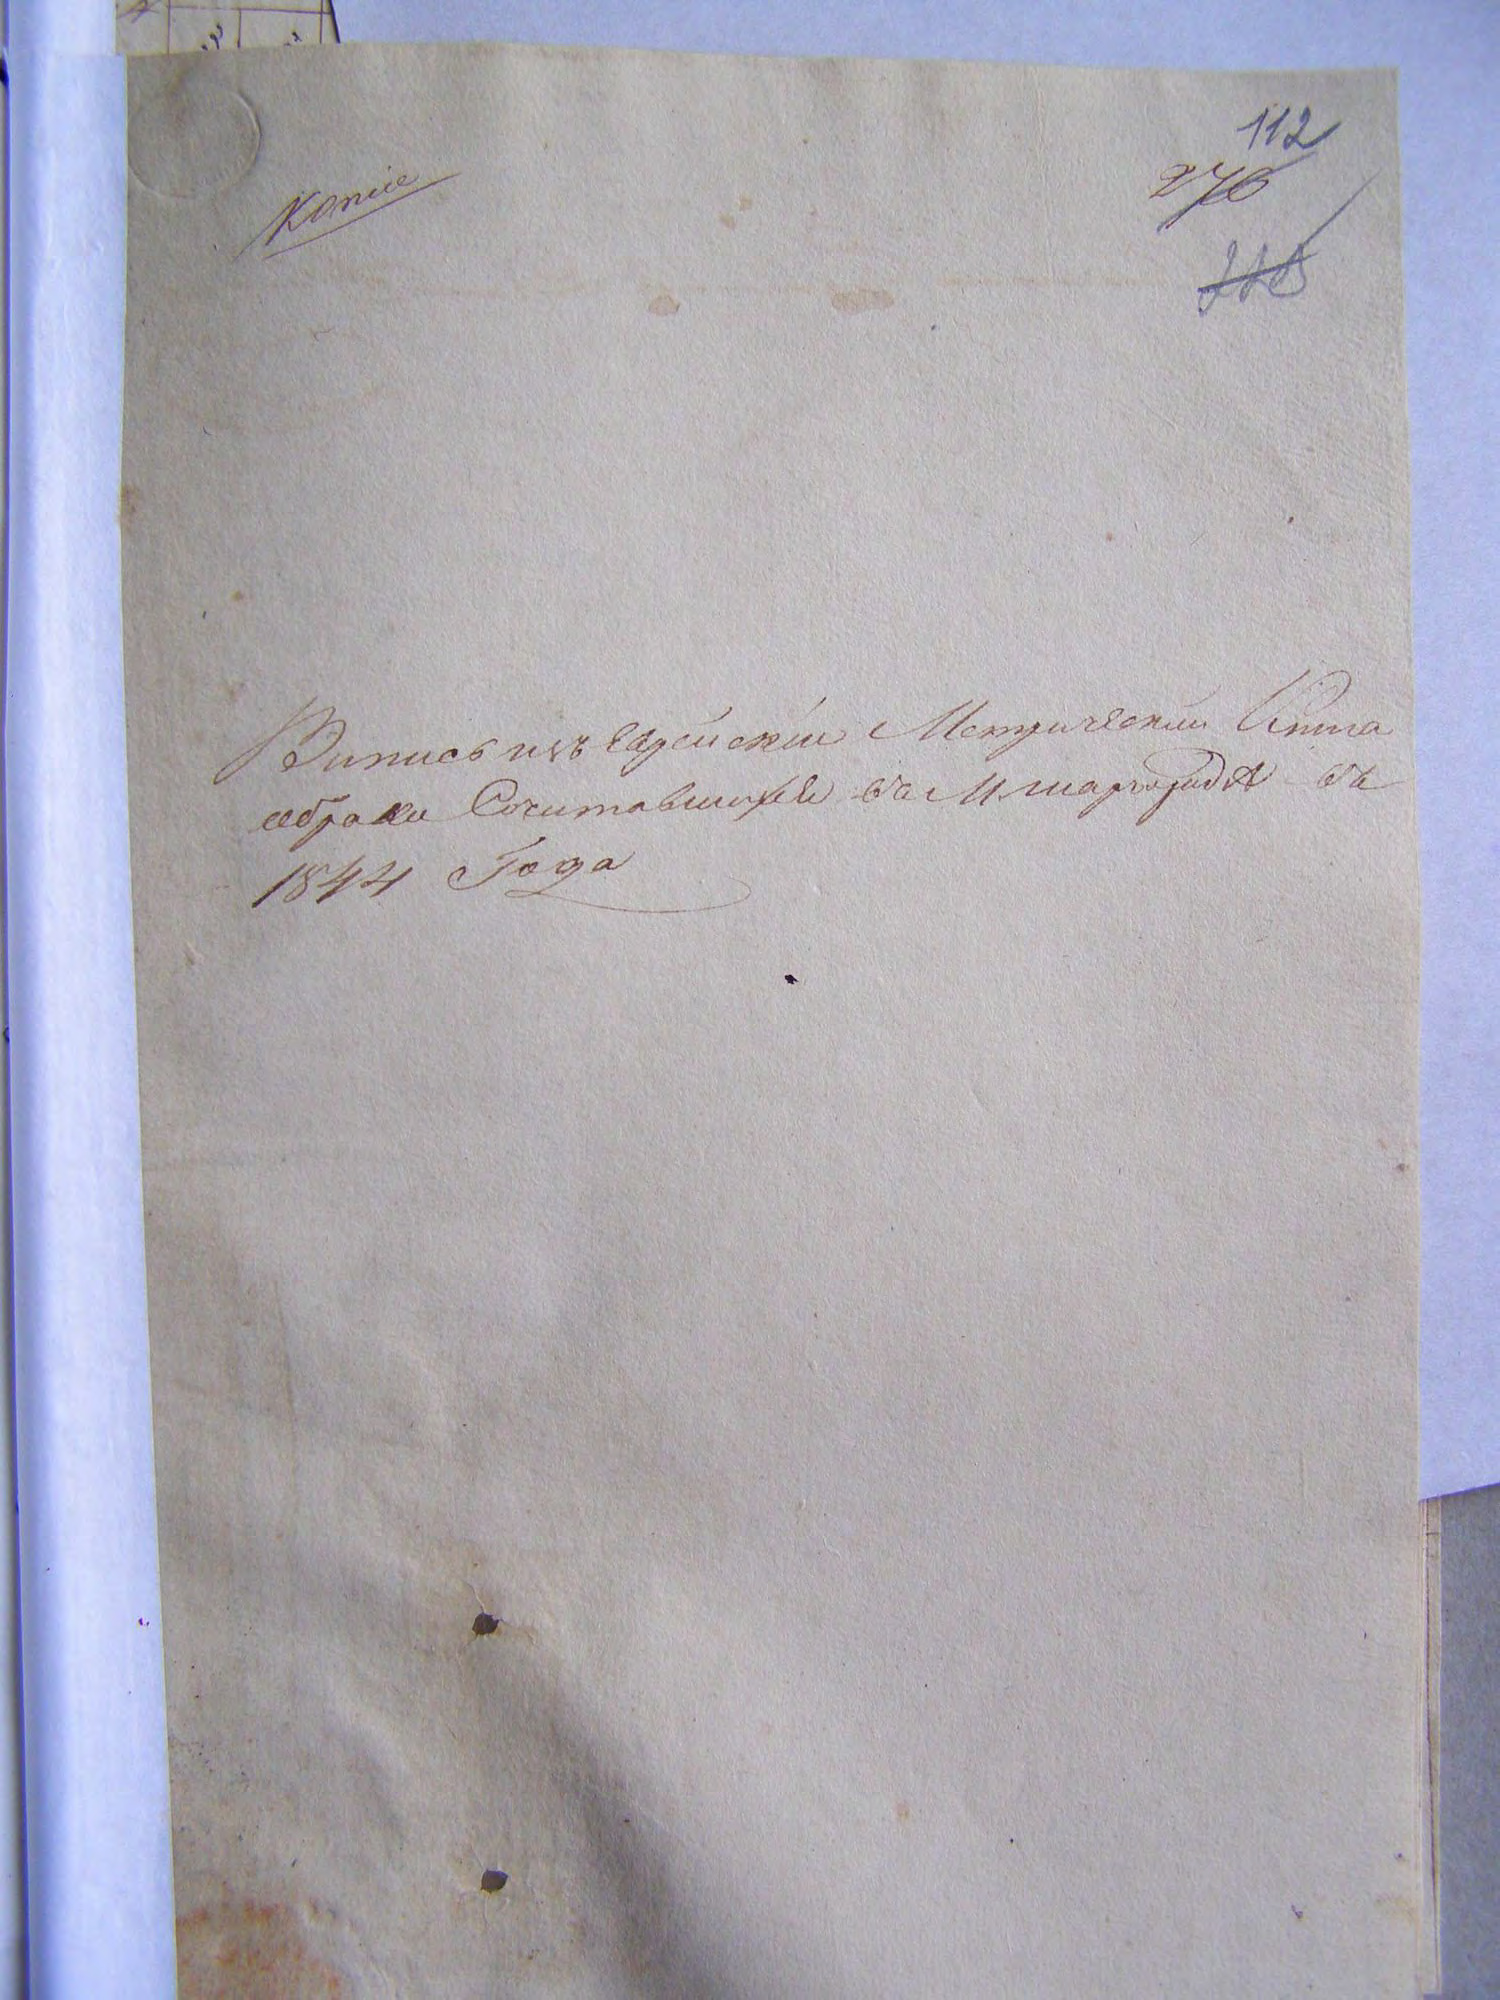 Копіе
112
276
Випись изъ Еврейскіи Метрическіи Книга
о бракы Сочитавшихся въ М Шаргородѣ въ
1844 Года